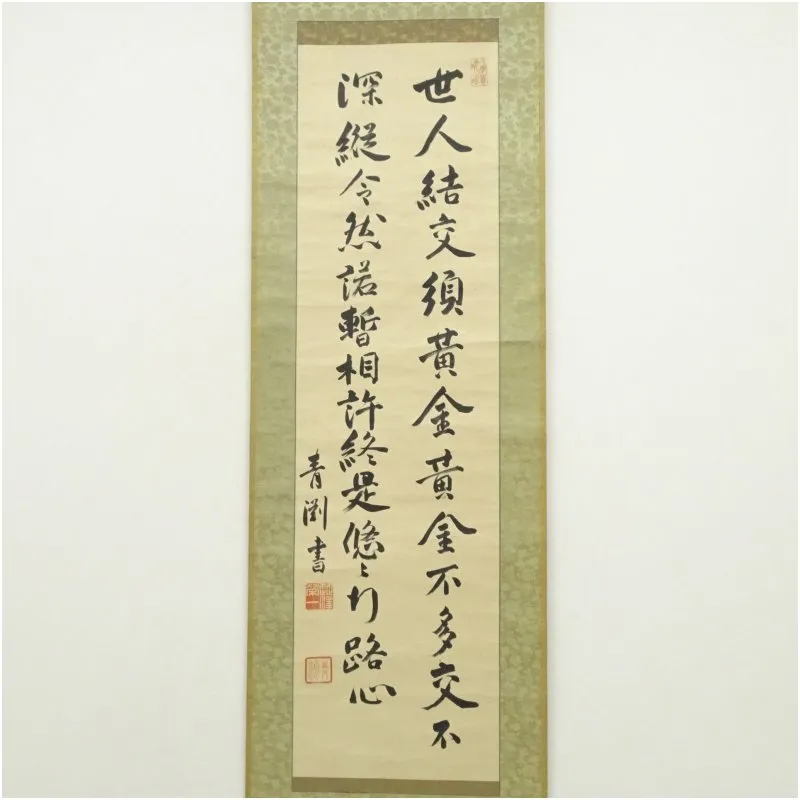 世人結交須黃金黃金不多交不
深縱令然諾暫相許終是悠〻行路心
青淵書